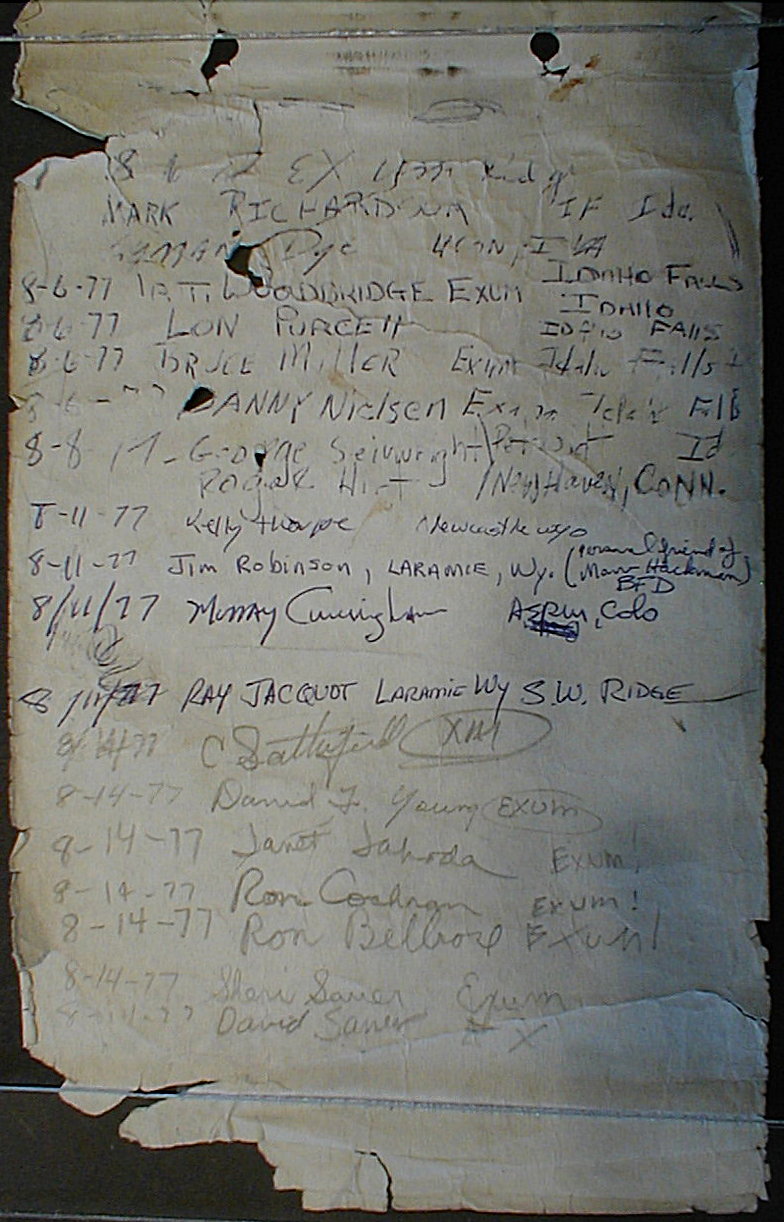 8 6 77 EX Ridge
MARK RICHARDSON IF Ida.
Dye UCON, IDA
8-6-77 WOODBRIDGE EXUM IDAHO FALLS IDAHO
8-6-77 LON PURCELL IDAHO FALLS
8-6-77 BRUCE Miller Exum Idaho Falls
8-6-77 DANNY Nielsen Exum Falls
8-8-77 George Seivwright Id
ROGER New Haven, CONN.
8-11-77 Kelly Thorpe Newcastle wyo
8-11-77 Jim Robinson, LARAMIE, Wy. (personal friend of
Hackman)
BFD
8/11/77 Murray Cunningham ASpen, Colo
8/11/77 RAY JACQUOT LARAMIE Wy S.W. RIDGE
8/14/77 C Satterfield XM
8-14-77 David F. Young EXUM
8-14-77 Janet Jahoda EXUM!
8-14-77 Ron Cochran EXUM!
8-14-77 Ron Bellrose EXUM!
8-14-77 Sheri Sauer Exum
8-14-77 David Sauer X